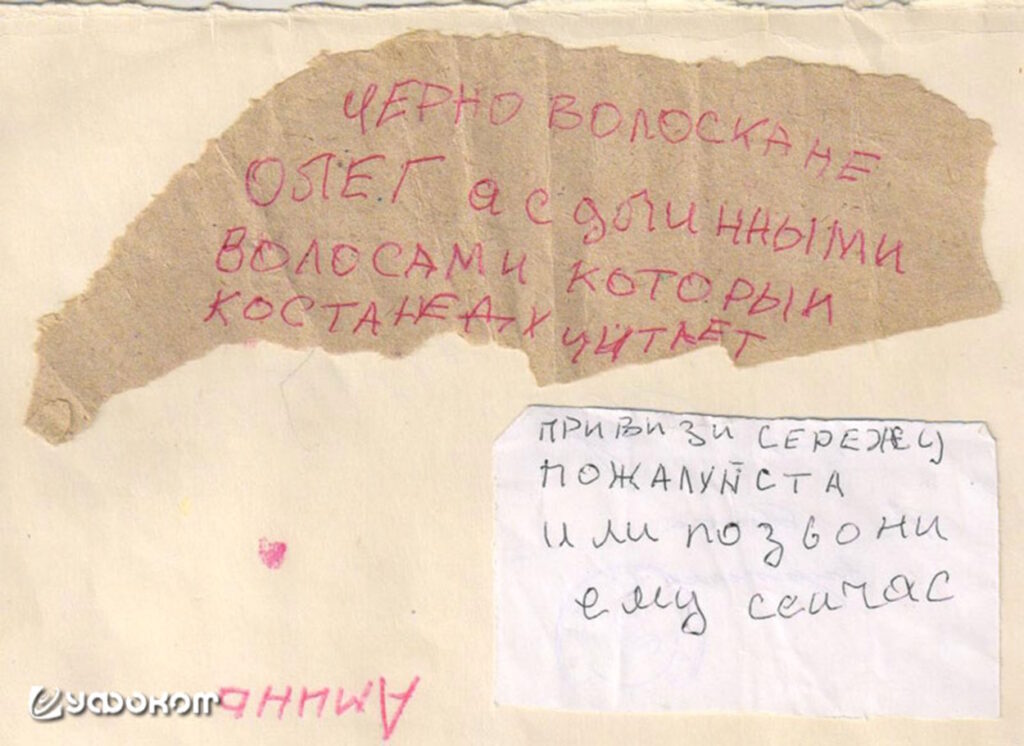 ЧЕРНО ВОЛОСКАНЕ
ОЛЕГ а с дличнными
ВОЛОСАМИ КОТОРЫИ
КОСТАНЕДА-Х ЧИТАЕТ
ПРИВИЗИ СЕРЕЖУ
ПОЖАЛУЙСТА
или позвони
ему сеичас
Амина
Уфоком